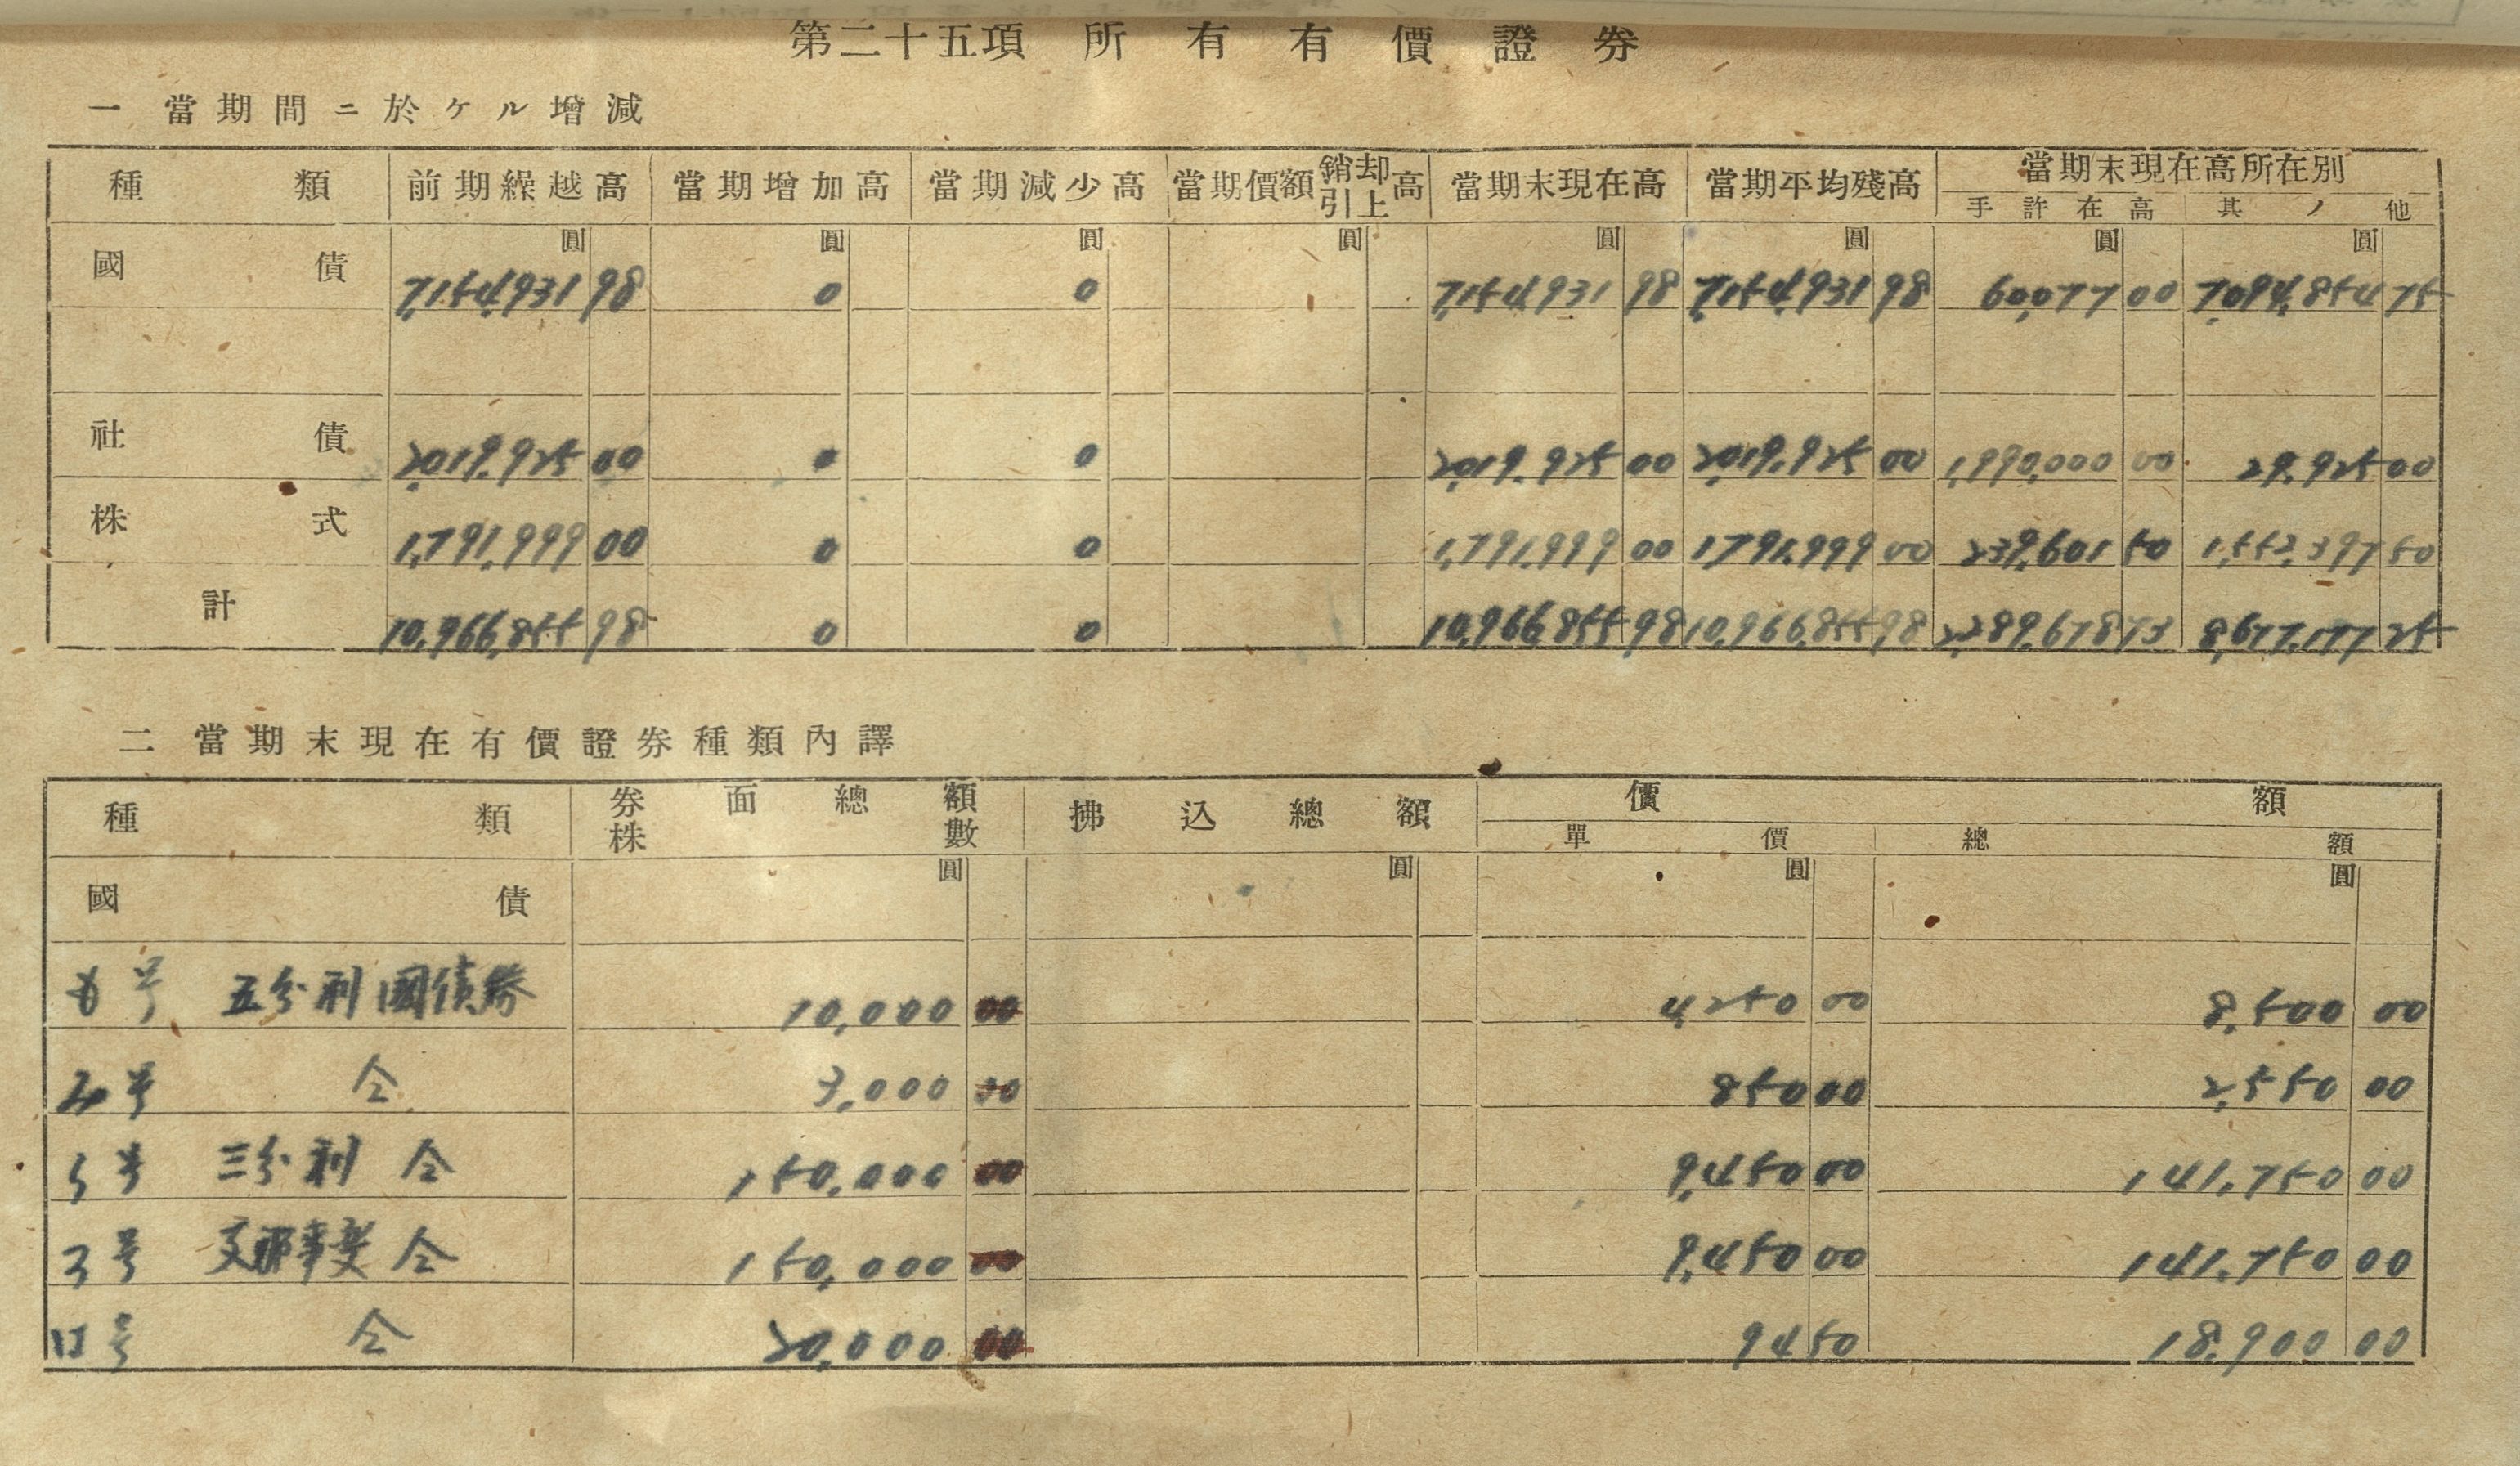 第二十五項 所有有價證券
一 當期間ニ於ケル增減
種類 前期繰越高 當期增加高 當期減少高 當期價額銷却引上高 當期末現在高 當期平均殘高 當期末現在高所在別
手許在高 其ノ他
圓 圓 圓 圓 圓 圓 圓 圓
國債 7,154,931 98 0 0 7,154,931 98 7,154,931 98 60,077 00 7,094,854 75
社債 2,019,925 00 0 0 2,019,925 00 2,019,925 00 1,990,000 00 29,925 00
株式 1,791,999 00 0 0 1,791,999 00 1,791,999 00 239,601 50 1,552,397 50
計 10,966,855 98 0 0 10,966,855 98 10,966,855 98 2,289,678 73 8,677,177 25
二 當期末現在有價證券種類內譯
種類 券面總額 株數 拂込總額 價額
單價 總額
圓 圓 圓 圓
國債
号 五分利國債券 10,000 00 4,250 00 8,500 00
号 仝 3,000 00 850 00 2,550 00
号 三分利 仝 150,000 00 9,450 00 141,750 00
号 支那事変 仝 150,000 00 9,450 00 141,750 00
号 仝 20,000 00 94 50 18,900 00